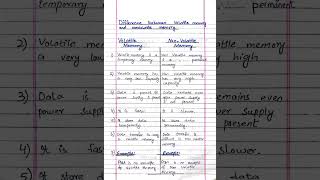 Difference between Volatile memory
and nonvolatile memory.
Volatile
Memory
Non-Volatile
Memory.
temporary
permanent
2) Volatile m
a very low
memory
high
3) Data is
power supply
remains even
supply
present
4) It is f
slower.
5) It store
data
1) Volatile memory is a
temporary memory
Non Volatile memory
is a permanent
memory
2) Volatile memory has
a very low capacity
Non Volatile memory
has very high
capacity
3) Data is present till
power supply is present
Data remains even
after power supply
is not present
4) It is fast
It is slower.
5) It store data
temporarily
It store data
permanently.
6) Data transfer is easy
in volatile memory
Data transfer is
difficult in non volatile
memory
7) Example:
RAM is an example
of volatile memory
Example:
ROM is an example
of non volatile
memory